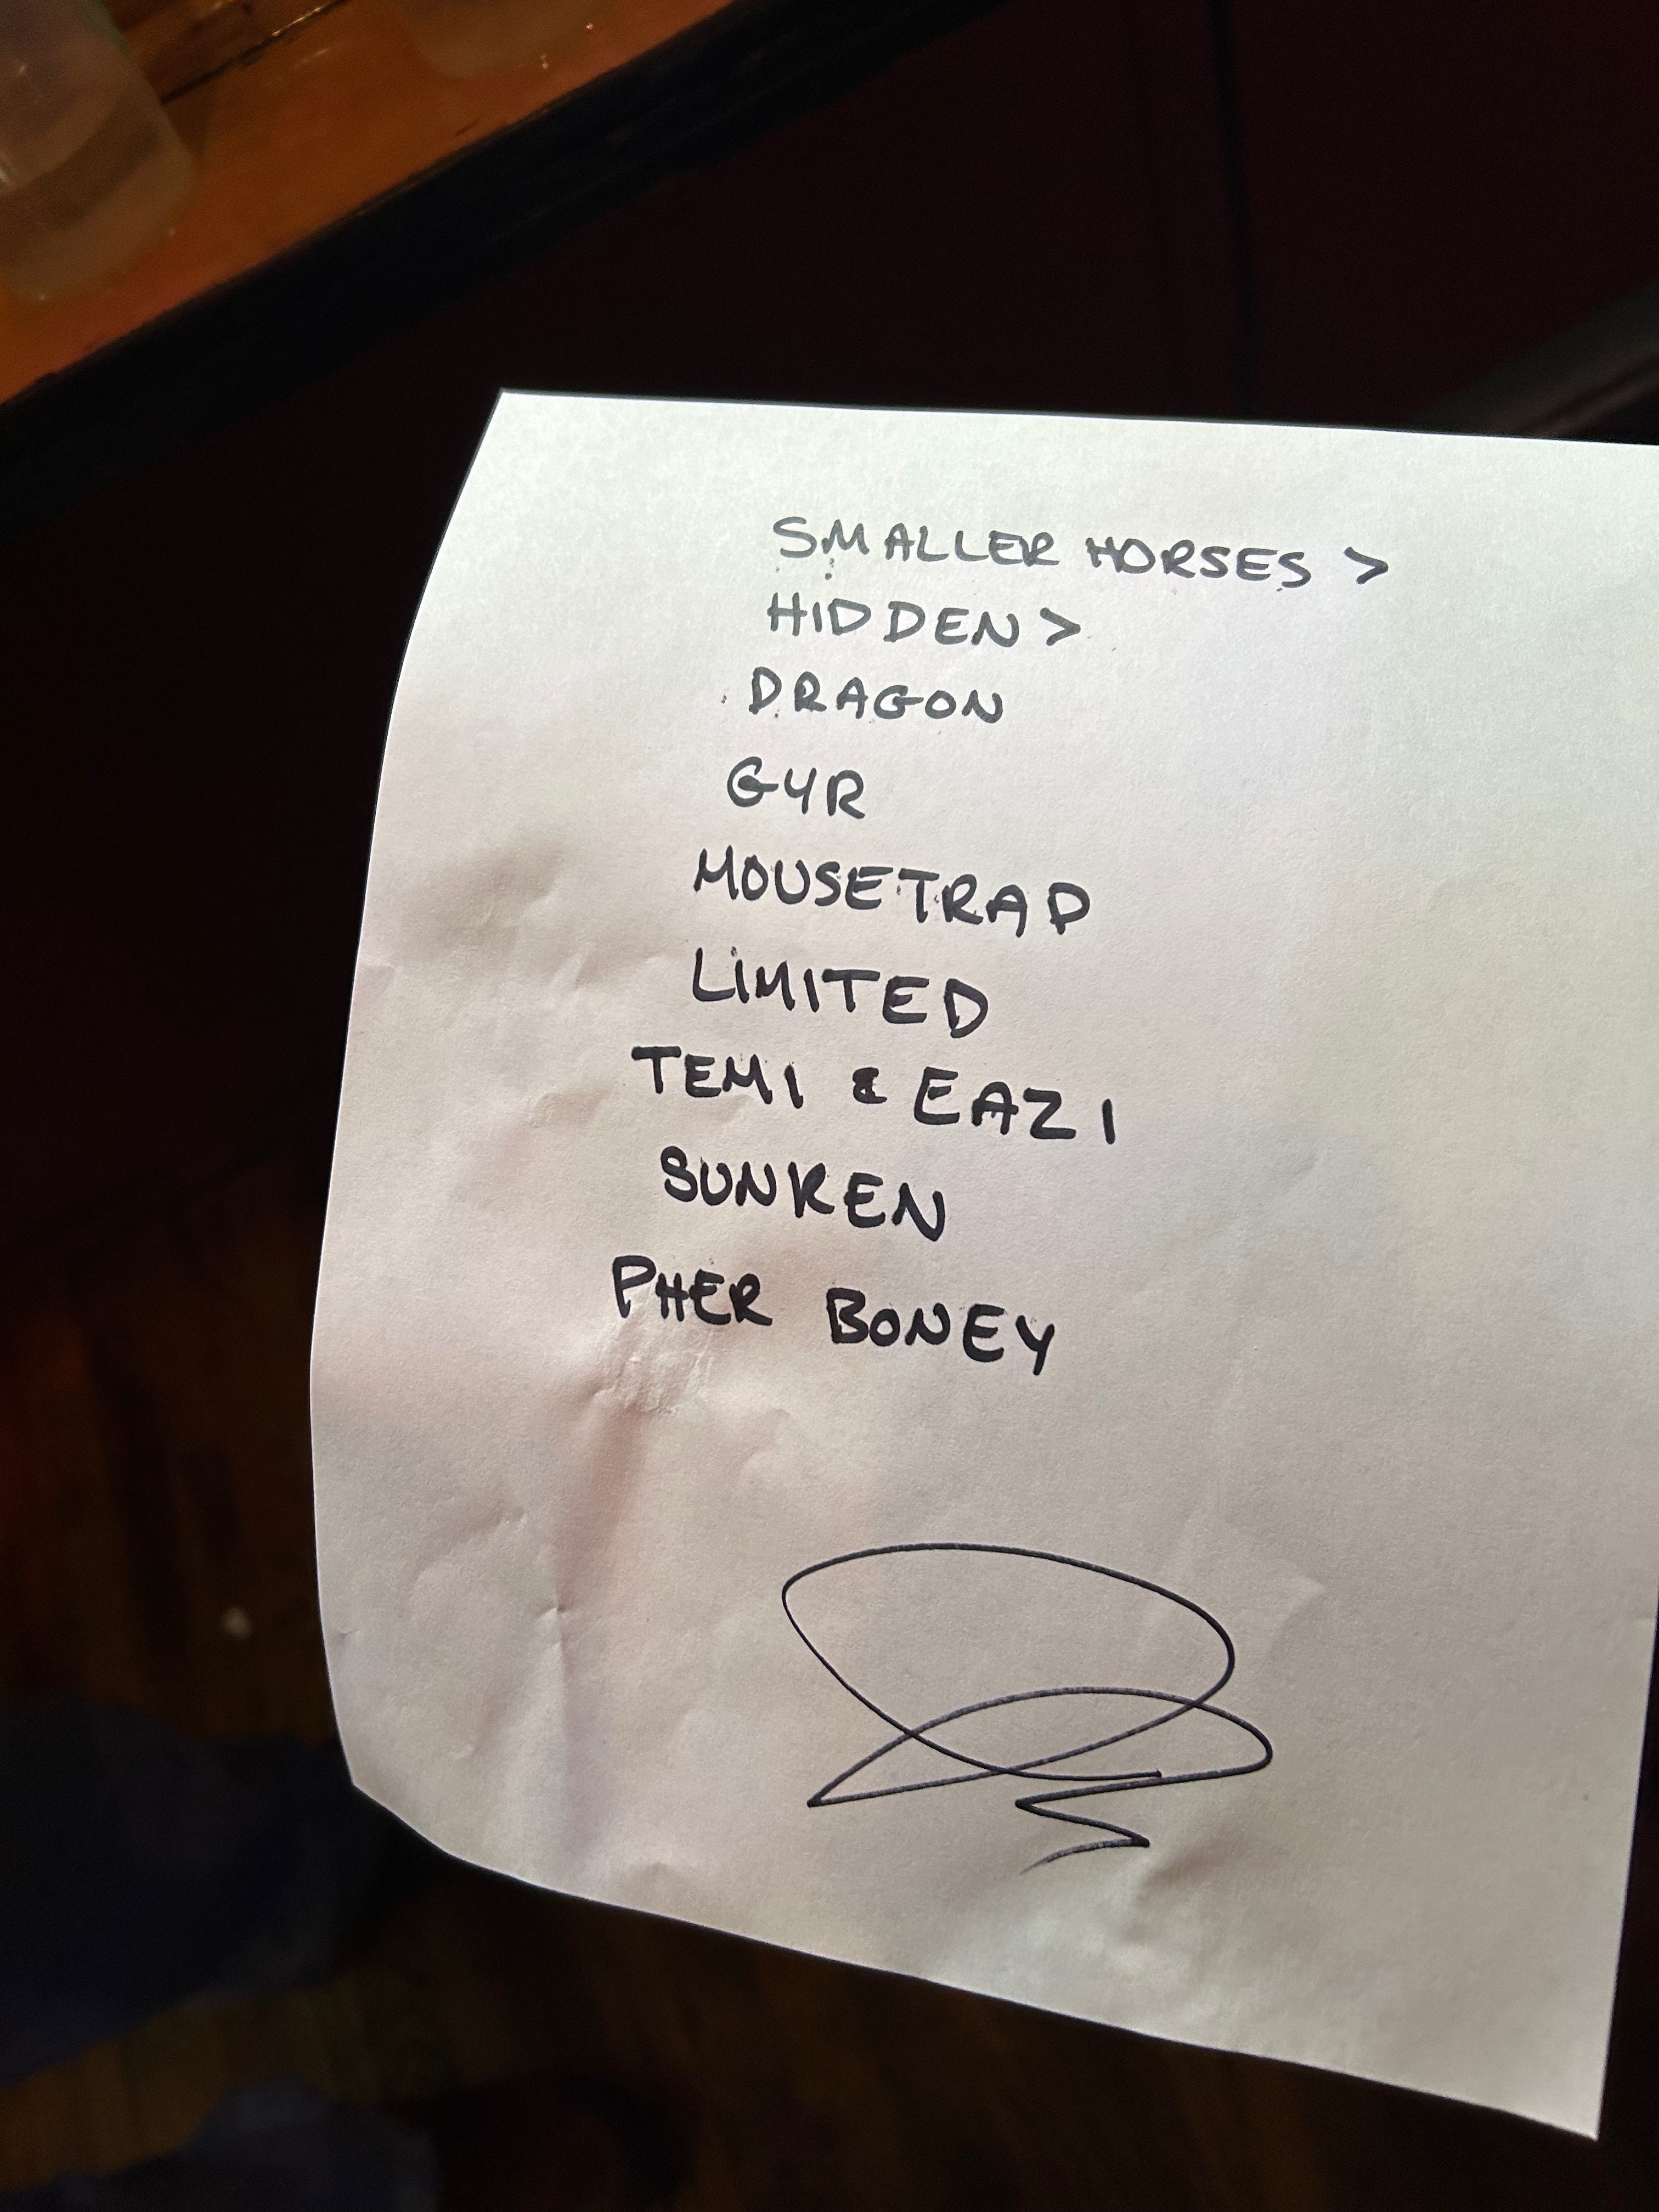 SMALLER HORSES >
HIDDEN >
DRAGON
GYR
MOUSETRAP
LIMITED
TEMI & EAZI
SUNKEN
PHER BONEY